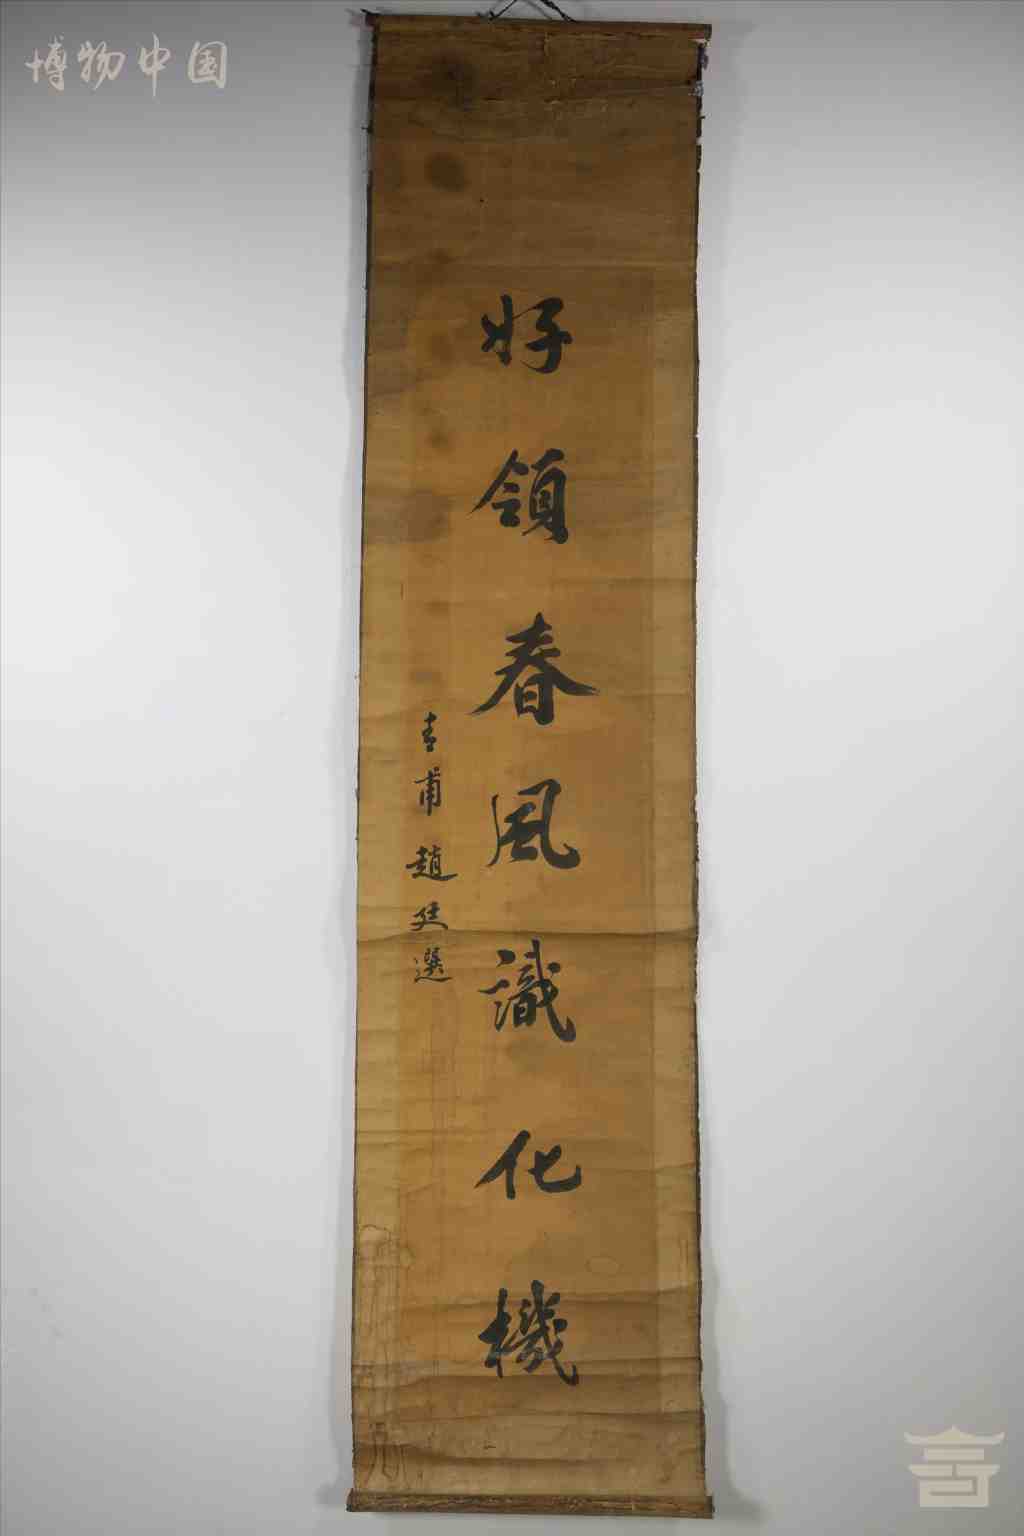 博物中国
好領春風識化機
青甫趙廷選